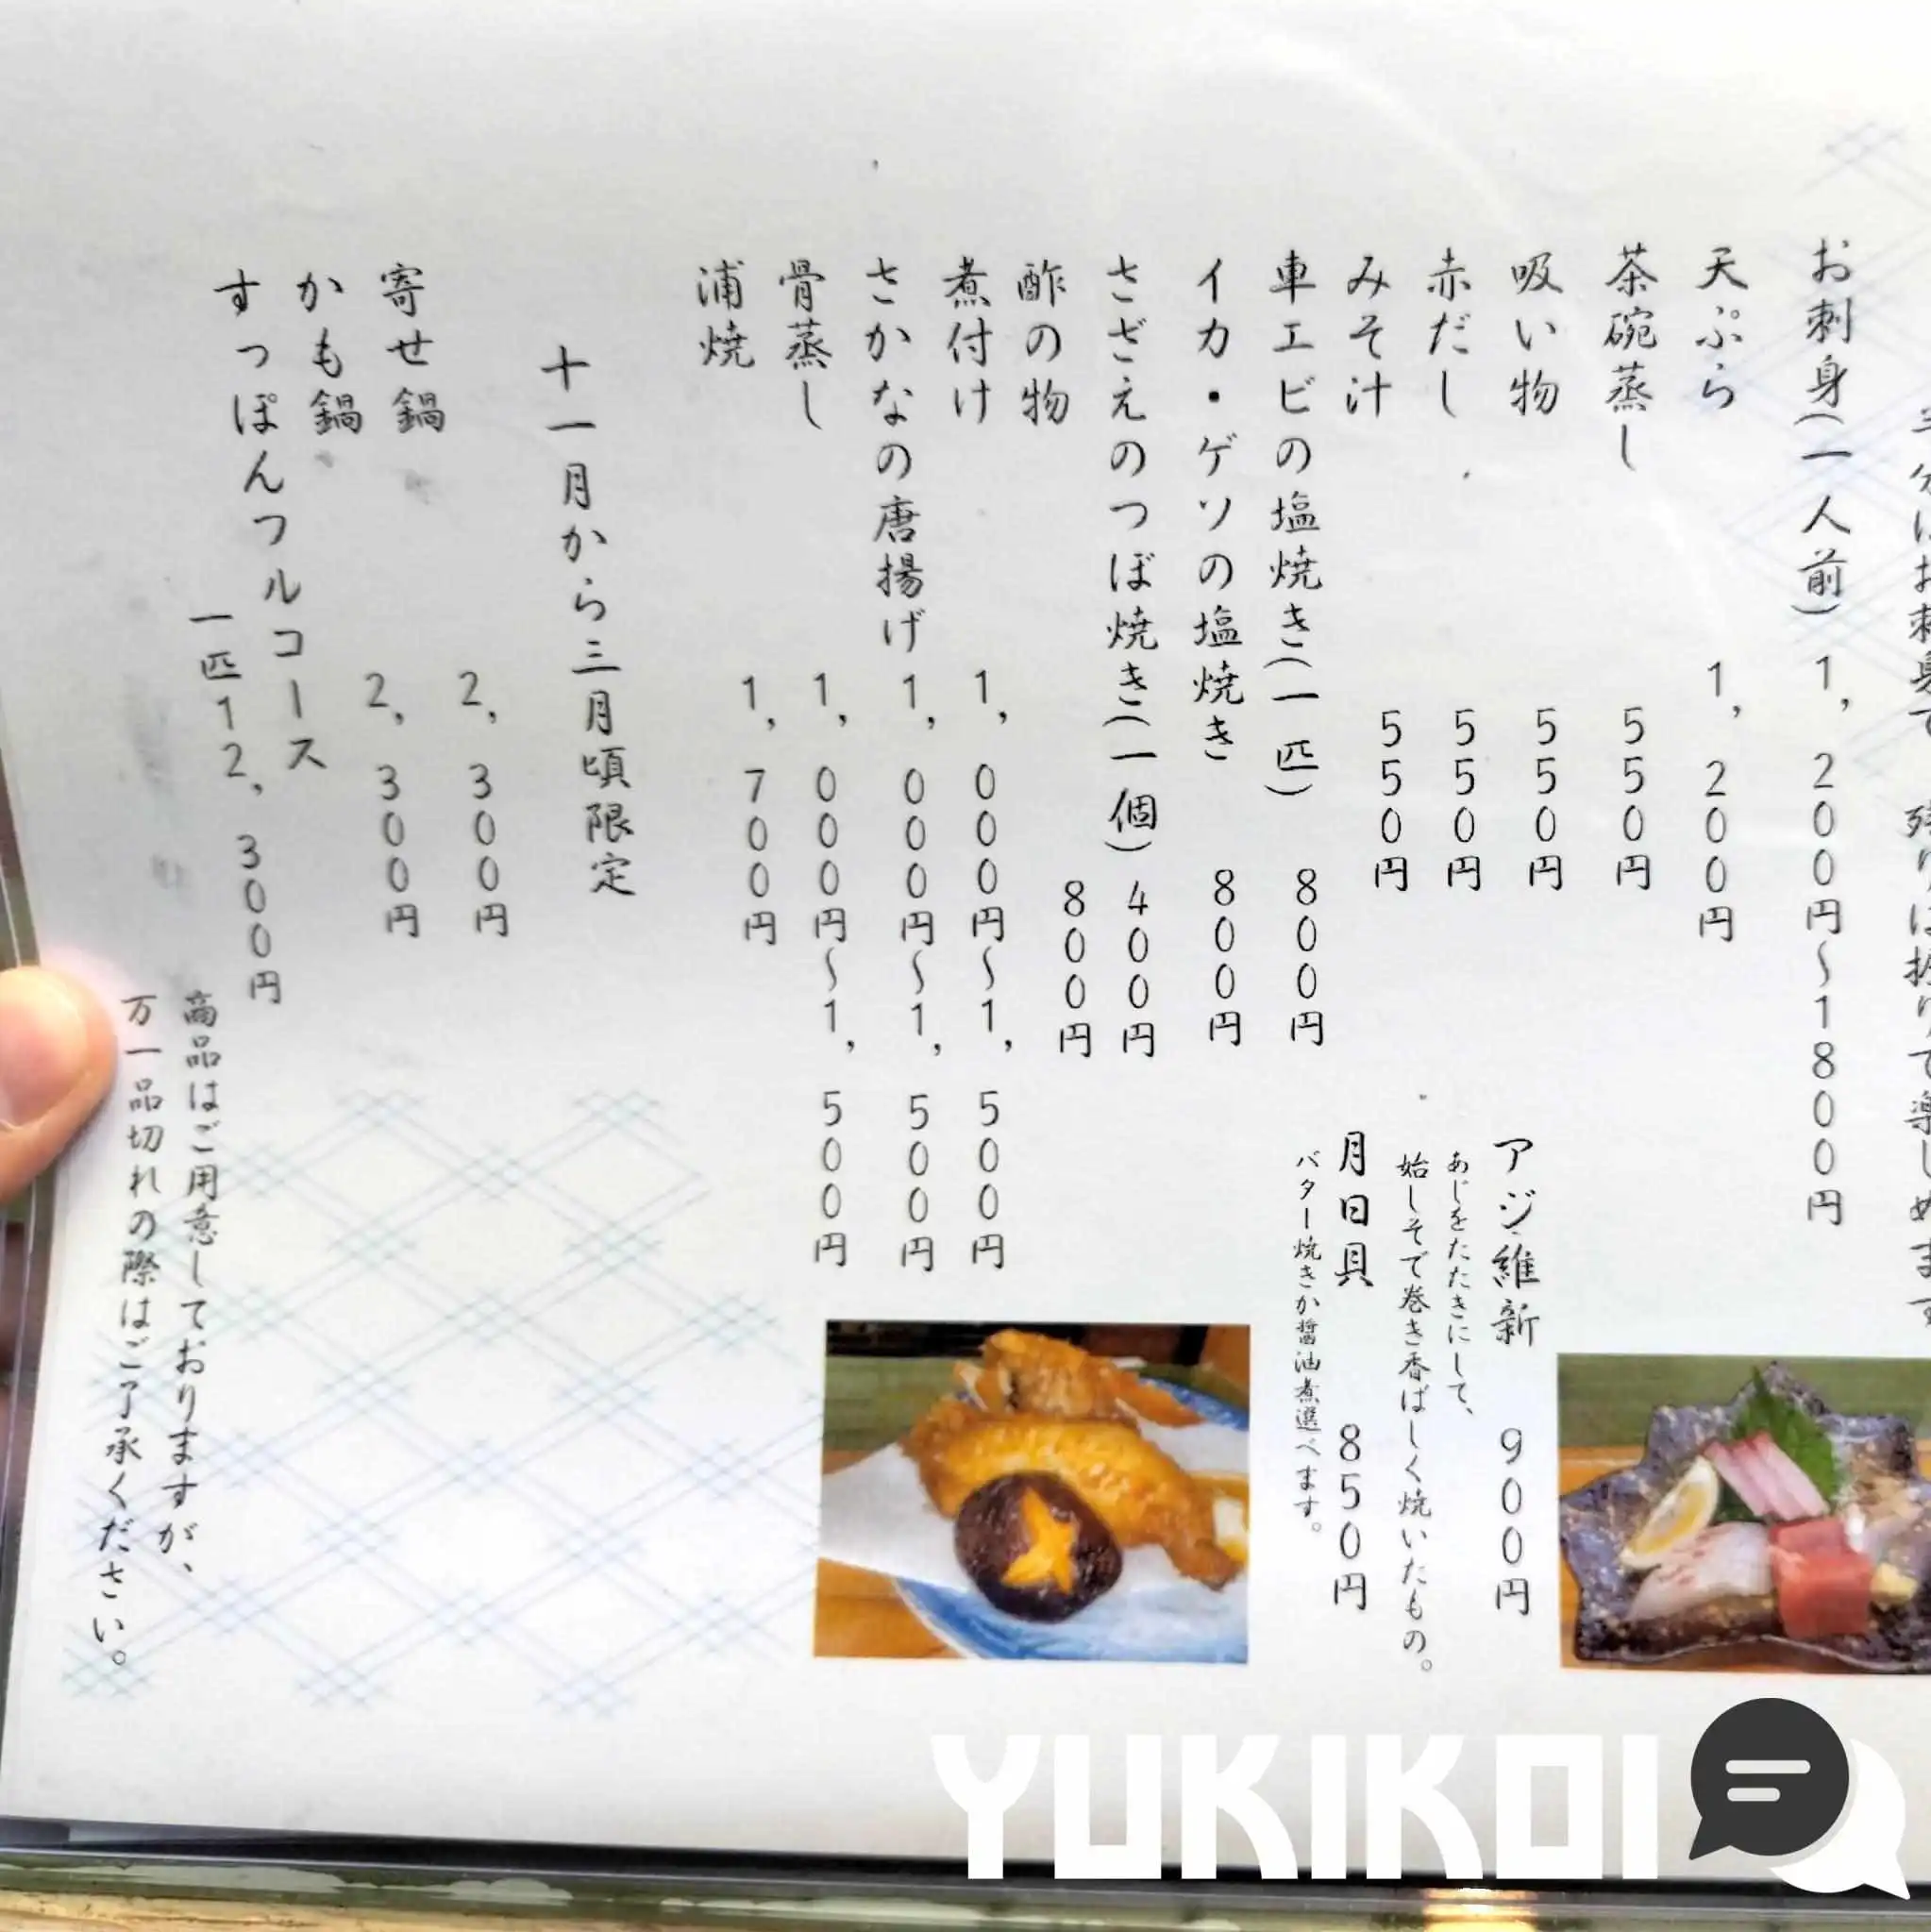 半分はお刺身で、残りは握りで楽しめます
お刺身(一人前) 1,200円〜1800円
天ぷら 1,200円
茶碗蒸し 550円
吸い物 550円
赤だし 550円
みそ汁 550円
車エビの塩焼き(一匹) 800円
イカ・ゲソの塩焼き 800円
さざえのつぼ焼き(一個) 400円
酢の物 800円
煮付け 1,000円〜1,500円
さかなの唐揚げ 1,000円〜1,500円
骨蒸し 1,000円〜1,500円
浦焼 1,700円
アジ維新 900円
あじをたたきにして、
始しそで巻き香ばしく焼いたもの。
月日貝 850円
バター焼きか醤油煮選べます。
十一月から三月頃限定
寄せ鍋 2,300円
かも鍋 2,300円
すっぽんフルコース
一匹12,300円
商品はご用意しておりますが、
万一品切れの際はご了承ください。
YUKIKOI